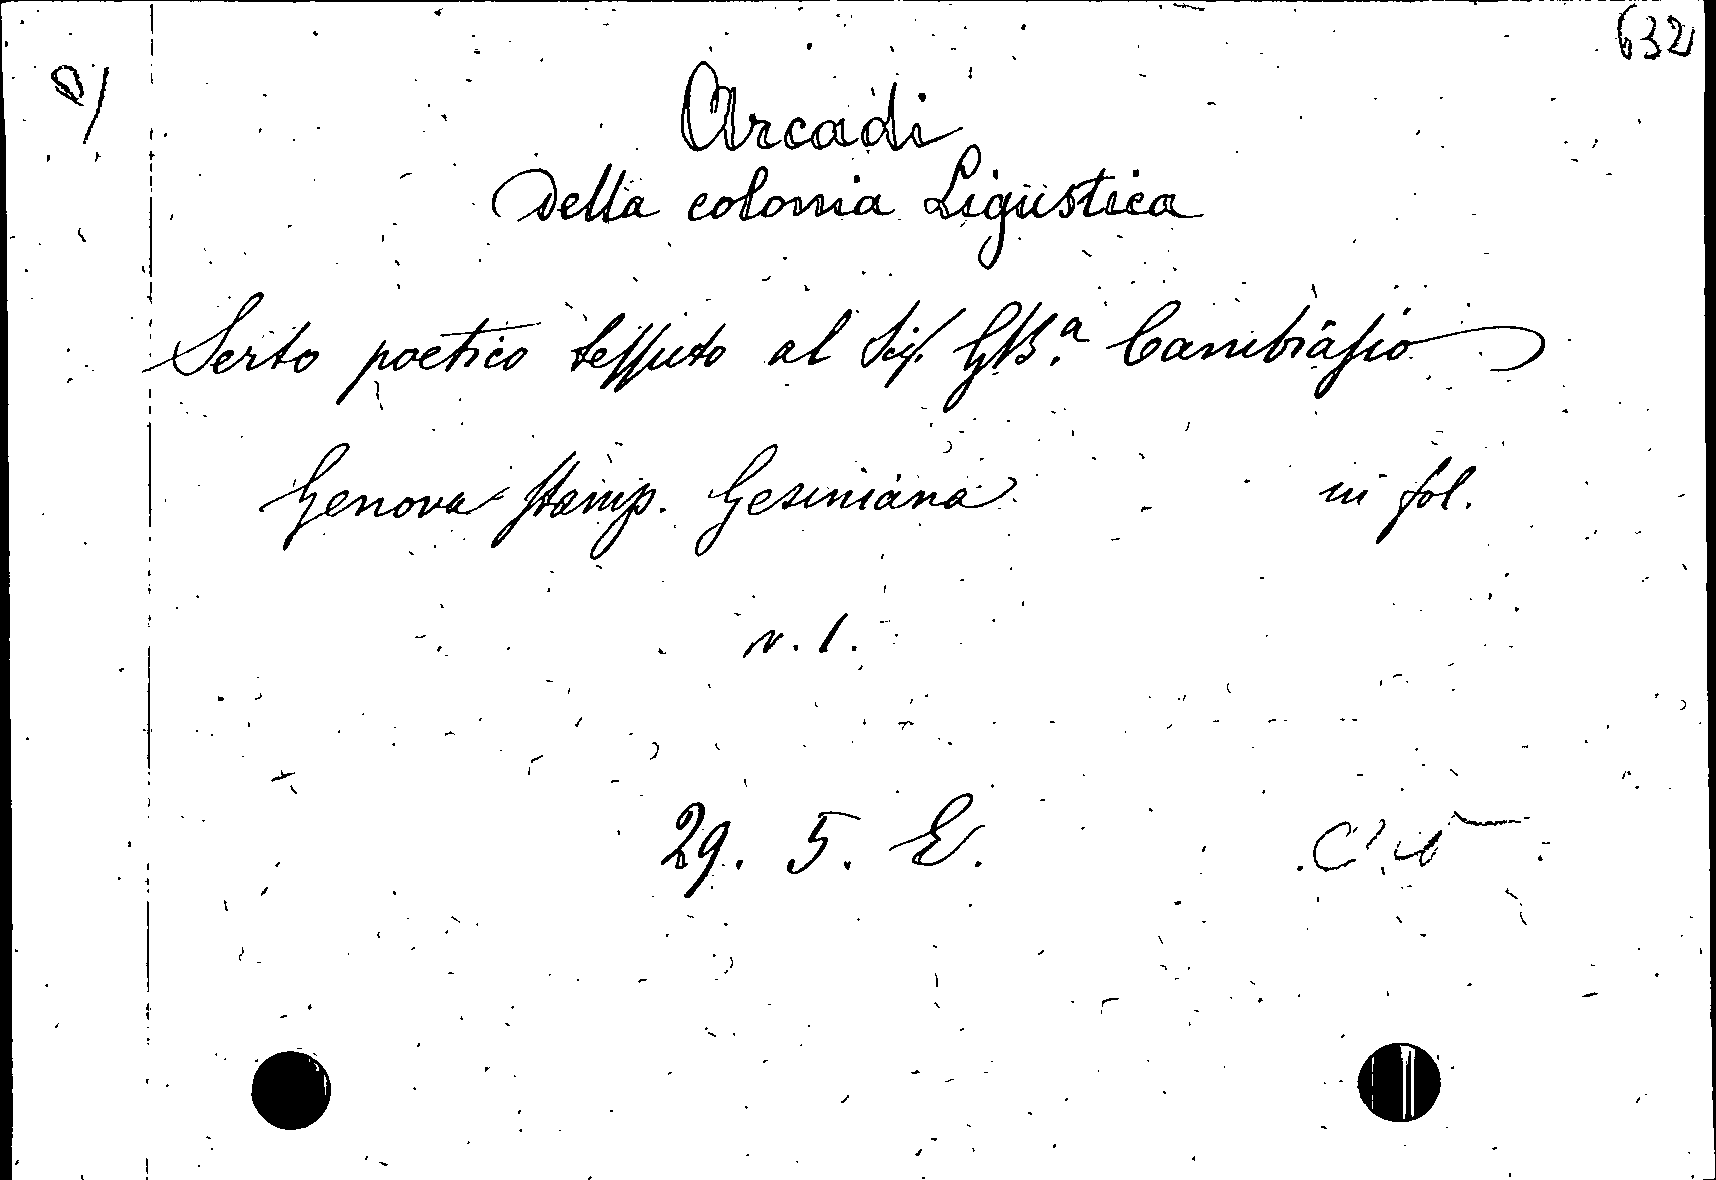 632
Arcadi
della colonia Ligustica
Serto poetico tessuto al Sig. GB.a Cambiasio
Genova Stamp. Gesiniana in fol.
v. 1.
29. 5. E.